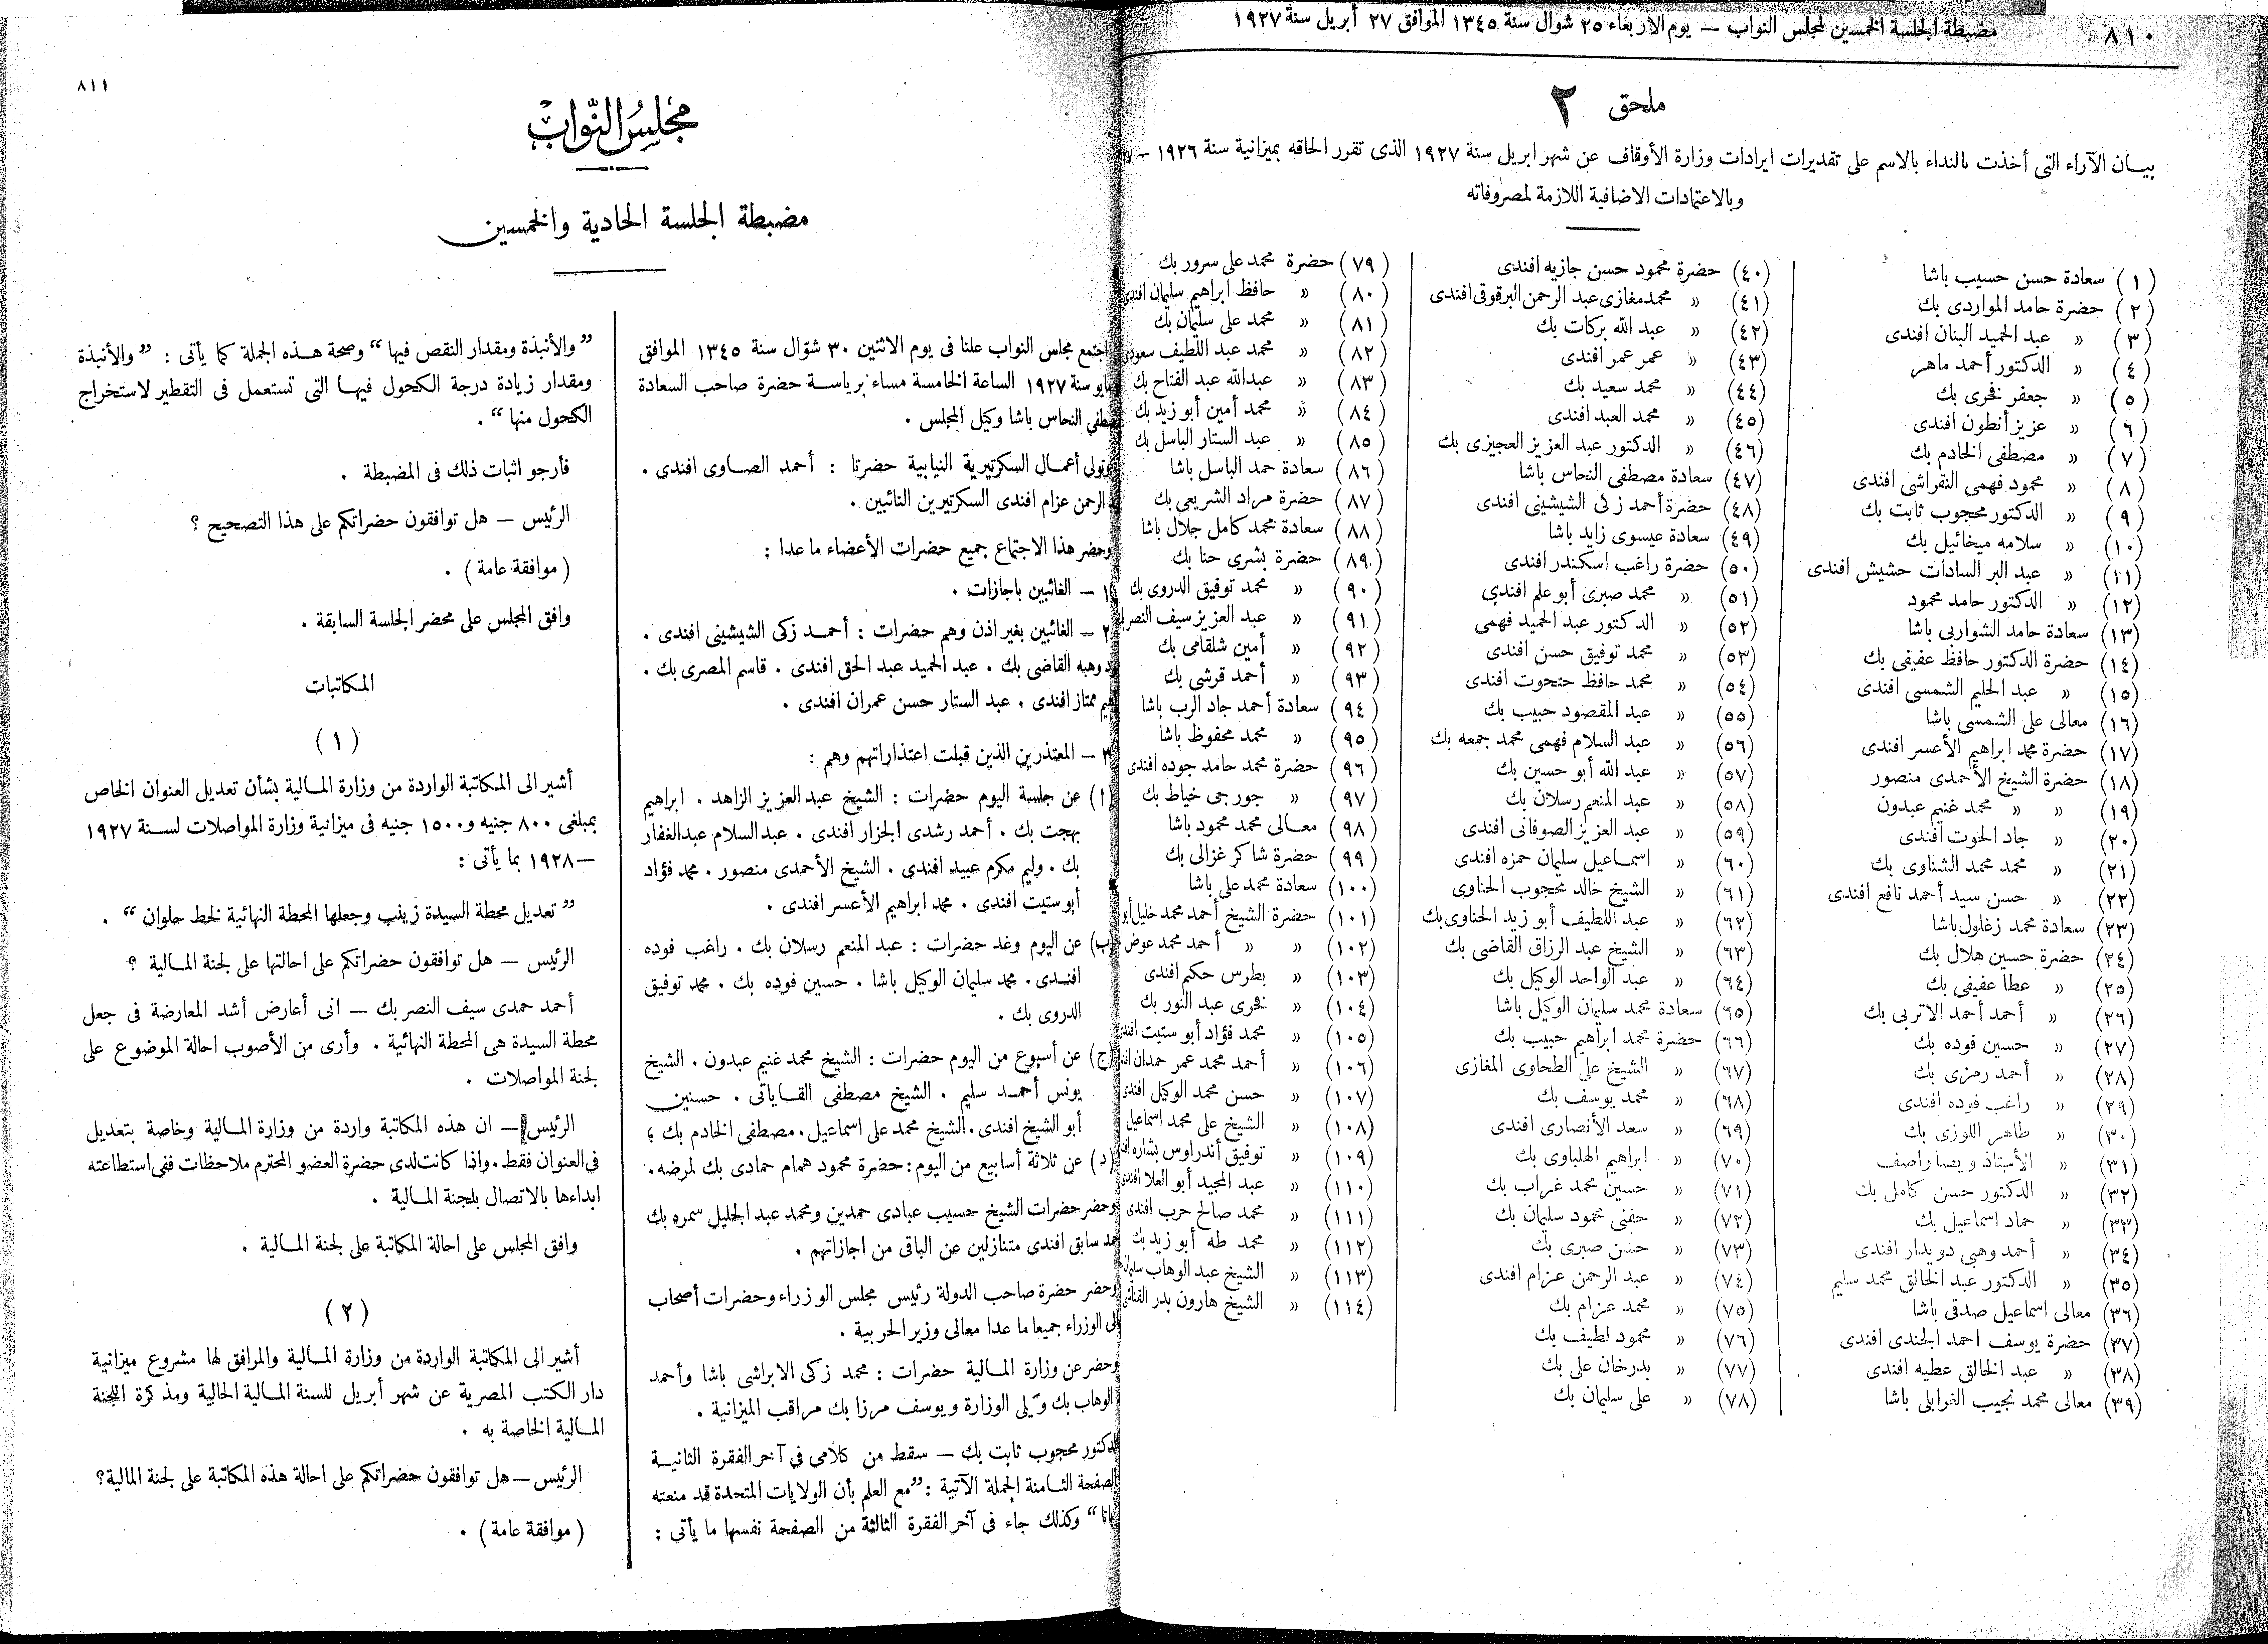 ٨١٠
مضبطة الجلسة الخمسين لمجلس النواب — يوم الأربعاء ٢٥ شوال سنة ١٣٤٥ الموافق ٢٧ أبريل سنة ١٩٢٧
ملحق ٢
بيان الآراء التى أخذت بالنداء بالاسم على تقديرات ايرادات وزارة الأوقاف عن شهر ابريل سنة ١٩٢٧ الذى تقرر الحاقه بميزانية سنة ١٩٢٦ –
وبالاعتمادات الاضافية اللازمة لمصروفاته
(١) سعادة حسن حسيب باشا
(٢) حضرة حامد المواردى بك
(٣) » عبد الحميد البنان افندى
(٤) » الدكتور أحمد ماهر
(٥) » جعفر فخرى بك
(٦) » عزيز أنطون افندى
(٧) » مصطفى الخادم بك
(٨) » محمود فهمى النقراشى افندى
(٩) » الدكتور محجوب ثابت بك
(١٠) » سلامه ميخائيل بك
(١١) » عبد البر السادات حشيش افندى
(١٢) » الدكتور حامد محمود
(١٣) سعادة حامد الشواربى باشا
(١٤) حضرة الدكتور حافظ عفيفى بك
(١٥) » عبد الحليم الشمسى افندى
(١٦) معالى على الشمسى باشا
(١٧) حضرة محمد ابراهيم الأعسر افندى
(١٨) حضرة الشيخ الأحمدى منصور
(١٩) » » محمد غنيم عبدون
(٢٠) » جاد الحوت افندى
(٢١) » محمد محمد الشناوى بك
(٢٢) » حسن سيد أحمد نافع افندى
(٢٣) سعادة محمد زغلول باشا
(٢٤) حضرة حسين هلال بك
(٢٥) » عطا عفيفى بك
(٢٦) » أحمد أحمد الاتربى بك
(٢٧) » حسين فوده بك
(٢٨) » أحمد رمزى بك
(٢٩) » راغب فوده افندى
(٣٠) » طاهر اللوزى بك
(٣١) » الأستاذ ويصا واصف
(٣٢) » الدكتور حسن كامل بك
(٣٣) » حماد اسماعيل بك
(٣٤) » أحمد وهبى دويدار افندى
(٣٥) » الدكتور عبد الخالق محمد سليم
(٣٦) معالى اسماعيل صدقى باشا
(٣٧) حضرة يوسف احمد الجندى افندى
(٣٨) » عبد الخالق عطيه افندى
(٣٩) معالى محمد نجيب الغرابلى باشا
(٤٠) حضرة محمود حسن جازيه افندى
(٤١) » محمد مغازى عبد الرحمن البرقوقى افندى
(٤٢) » عبد الله بركات بك
(٤٣) » عمر عمر افندى
(٤٤) » محمد سعيد بك
(٤٥) » محمد العبد افندى
(٤٦) » الدكتور عبد العزيز العجيزى بك
(٤٧) سعادة مصطفى النحاس باشا
(٤٨) حضرة أحمد زكى الشيشينى افندى
(٤٩) سعادة عيسوى زايد باشا
(٥٠) حضرة راغب اسكندر افندى
(٥١) » محمد صبرى أبو علم افندى
(٥٢) » الدكتور عبد الحميد فهمى
(٥٣) » محمد توفيق حسن افندى
(٥٤) » محمد حافظ حتحوت افندى
(٥٥) » عبد المقصود حبيب بك
(٥٦) » عبد السلام فهمى محمد جمعه بك
(٥٧) » عبد الله أبو حسين بك
(٥٨) » عبد المنعم رسلان بك
(٥٩) » عبد العزيز الصوفانى افندى
(٦٠) » اسماعيل سليمان حمزه افندى
(٦١) » الشيخ خالد محجوب الحناوى
(٦٢) » عبد اللطيف أبو زيد الحناوى بك
(٦٣) » الشيخ عبد الرزاق القاضى بك
(٦٤) » عبد الواحد الوكيل بك
(٦٥) سعادة محمد سليمان الوكيل باشا
(٦٦) حضرة محمد ابراهيم حبيب بك
(٦٧) » الشيخ على الطحاوى المغازى
(٦٨) » محمد يوسف بك
(٦٩) » سعد الأنصارى افندى
(٧٠) » ابراهيم الهلباوى بك
(٧١) » حسين محمد غراب بك
(٧٢) » حفنى محمود سليمان بك
(٧٣) » حسن صبرى بك
(٧٤) » عبد الرحمن عزام افندى
(٧٥) » محمد عزام بك
(٧٦) » محمود لطيف بك
(٧٧) » بدرخان على بك
(٧٨) » على سليمان بك
(٧٩) حضرة محمد على سرور بك
(٨٠) » حافظ ابراهيم سليمان افندى
(٨١) » محمد على سليمان بك
(٨٢) » محمد عبد اللطيف سعودى
(٨٣) » عبدالله عبد الفتاح بك
(٨٤) » محمد أمين أبو زيد بك
(٨٥) » عبد الستار الباسل بك
(٨٦) سعادة حمد الباسل باشا
(٨٧) حضرة مراد الشريعى بك
(٨٨) سعادة محمد كامل جلال باشا
(٨٩) حضرة بشرى حنا بك
(٩٠) » محمد توفيق الدروى بك
(٩١) » عبد العزيز سيف النصر بك
(٩٢) » أمين شلقامى بك
(٩٣) » أحمد قرشى بك
(٩٤) سعادة أحمد جاد الرب باشا
(٩٥) » محمد محفوظ باشا
(٩٦) حضرة محمد حامد جوده افندى
(٩٧) » جورجى خياط بك
(٩٨) معالى محمد محمود باشا
(٩٩) حضرة شاكر غزالى بك
(١٠٠) سعادة محمد على باشا
(١٠١) حضرة الشيخ أحمد محمد خليل أبو
(١٠٢) » » أحمد محمد عوض
(١٠٣) » بطرس حكيم افندى
(١٠٤) » فخرى عبد النور بك
(١٠٥) » محمد فؤاد أبو ستيت افندى
(١٠٦) » أحمد محمد عمر حمدان
(١٠٧) » حسن محمد الوكيل افندى
(١٠٨) » الشيخ على محمد اسماعيل
(١٠٩) » توفيق أندراوس بشاره
(١١٠) » عبد المجيد أبو العلا افندى
(١١١) » محمد صالح حرب افندى
(١١٢) » محمد طه أبو زيد بك
(١١٣) » الشيخ عبد الوهاب
(١١٤) » الشيخ هارون بدر
٨١١
مجلس النواب
مضبطة الجلسة الحادية والخمسين
اجتمع مجلس النواب علنا فى يوم الاثنين ٣٠ شوال سنة ١٣٤٥ الموافق
مايو سنة ١٩٢٧ الساعة الخامسة مساء برياسة حضرة صاحب السعادة
مصطفى النحاس باشا وكيل المجلس .
وتولى أعمال السكرتيرية النيابية حضرتا : أحمد الصاوى افندى .
عبد الرحمن عزام افندى السكرتيرين النائبين .
وحضر هذا الاجتماع جميع حضرات الأعضاء ما عدا :
١ – الغائبين باجازات .
٢ – الغائبين بغير اذن وهم حضرات : أحمد زكى الشيشينى افندى .
وهبه القاضى بك . عبد الحميد عبد الحق افندى . قاسم المصرى بك .
ممتاز افندى . عبد الستار حسن عمران افندى .
٣ – المعتذرين الذين قبلت اعتذاراتهم وهم :
(ا) عن جلسة اليوم حضرات : الشيخ عبد العزيز الزاهد . ابراهيم
بهجت بك . أحمد رشدى الجزار افندى . عبد السلام عبد الغفار
بك . وليم مكرم عبيد افندى . الشيخ الأحمدى منصور . محمد فؤاد
أبو ستيت افندى . محمد ابراهيم الأعسر افندى .
(ب) عن اليوم وغد حضرات : عبد المنعم رسلان بك . راغب فوده
افندى . محمد سليمان الوكيل باشا . حسين فوده بك . محمد توفيق
الدروى بك .
(ج) عن أسبوع من اليوم حضرات : الشيخ محمد غنيم عبدون . الشيخ
يونس أحمد سليم . الشيخ مصطفى القاياتى . حسنين
أبو الشيخ افندى . الشيخ محمد على اسماعيل . مصطفى الخادم بك ؛
(د) عن ثلاثة أسابيع من اليوم : حضرة محمود همام حمادى بك لمرضه .
وحضر حضرات الشيخ حسيب عبادى حمدين ومحمد عبد الجليل سمره بك
سابق افندى متنازلين عن الباقى من اجازاتهم .
وحضر حضرة صاحب الدولة رئيس مجلس الوزراء وحضرات أصحاب
الوزراء جميعا ما عدا معالى وزير الحربية .
وحضر عن وزارة المالية حضرات : محمد زكى الابراشى باشا وأحمد
الوهاب بك وكيلى الوزارة ويوسف مرزا بك مراقب الميزانية .
الدكتور محجوب ثابت بك — سقط من كلامى فى آخر الفقرة الثانية
الصفحة الثامنة الجملة الآتية : ”مع العلم بأن الولايات المتحدة قد منعته
“ وكذلك جاء فى آخر الفقرة الثالثة من الصفحة نفسها ما يأتى :
”والأنبذة ومقدار النقص فيها“ وصحة هذه الجملة كما يأتى : ”والأنبذة
ومقدار زيادة درجة الكحول فيها التى تستعمل فى التقطير لاستخراج
الكحول منها“ .
فأرجو اثبات ذلك فى المضبطة .
الرئيس — هل توافقون حضراتكم على هذا التصحيح ؟
(موافقة عامة) .
وافق المجلس على محضر الجلسة السابقة .
المكاتبات
(١)
أشير الى المكاتبة الواردة من وزارة المالية بشأن تعديل العنوان الخاص
بمبلغى ٨٠٠ جنيه و١٥٠٠ جنيه فى ميزانية وزارة المواصلات لسنة ١٩٢٧
–١٩٢٨ بما يأتى :
”تعديل محطة السيدة زينب وجعلها المحطة النهائية لخط حلوان“ .
الرئيس — هل توافقون حضراتكم على احالتها على لجنة المالية ؟
أحمد حمدى سيف النصر بك — انى أعارض أشد المعارضة فى جعل
محطة السيدة هى المحطة النهائية . وأرى من الأصوب احالة الموضوع على
لجنة المواصلات .
الرئيس — ان هذه المكاتبة واردة من وزارة المالية وخاصة بتعديل
فى العنوان فقط . واذا كانت لدى حضرة العضو المحترم ملاحظات ففى استطاعته
ابداءها بالاتصال بلجنة المالية .
وافق المجلس على احالة المكاتبة على لجنة المالية .
(٢)
أشير الى المكاتبة الواردة من وزارة المالية والمرافق لها مشروع ميزانية
دار الكتب المصرية عن شهر أبريل للسنة المالية الحالية ومذكرة اللجنة
المالية الخاصة به .
الرئيس — هل توافقون حضراتكم على احالة هذه المكاتبة على لجنة المالية؟
(موافقة عامة) .